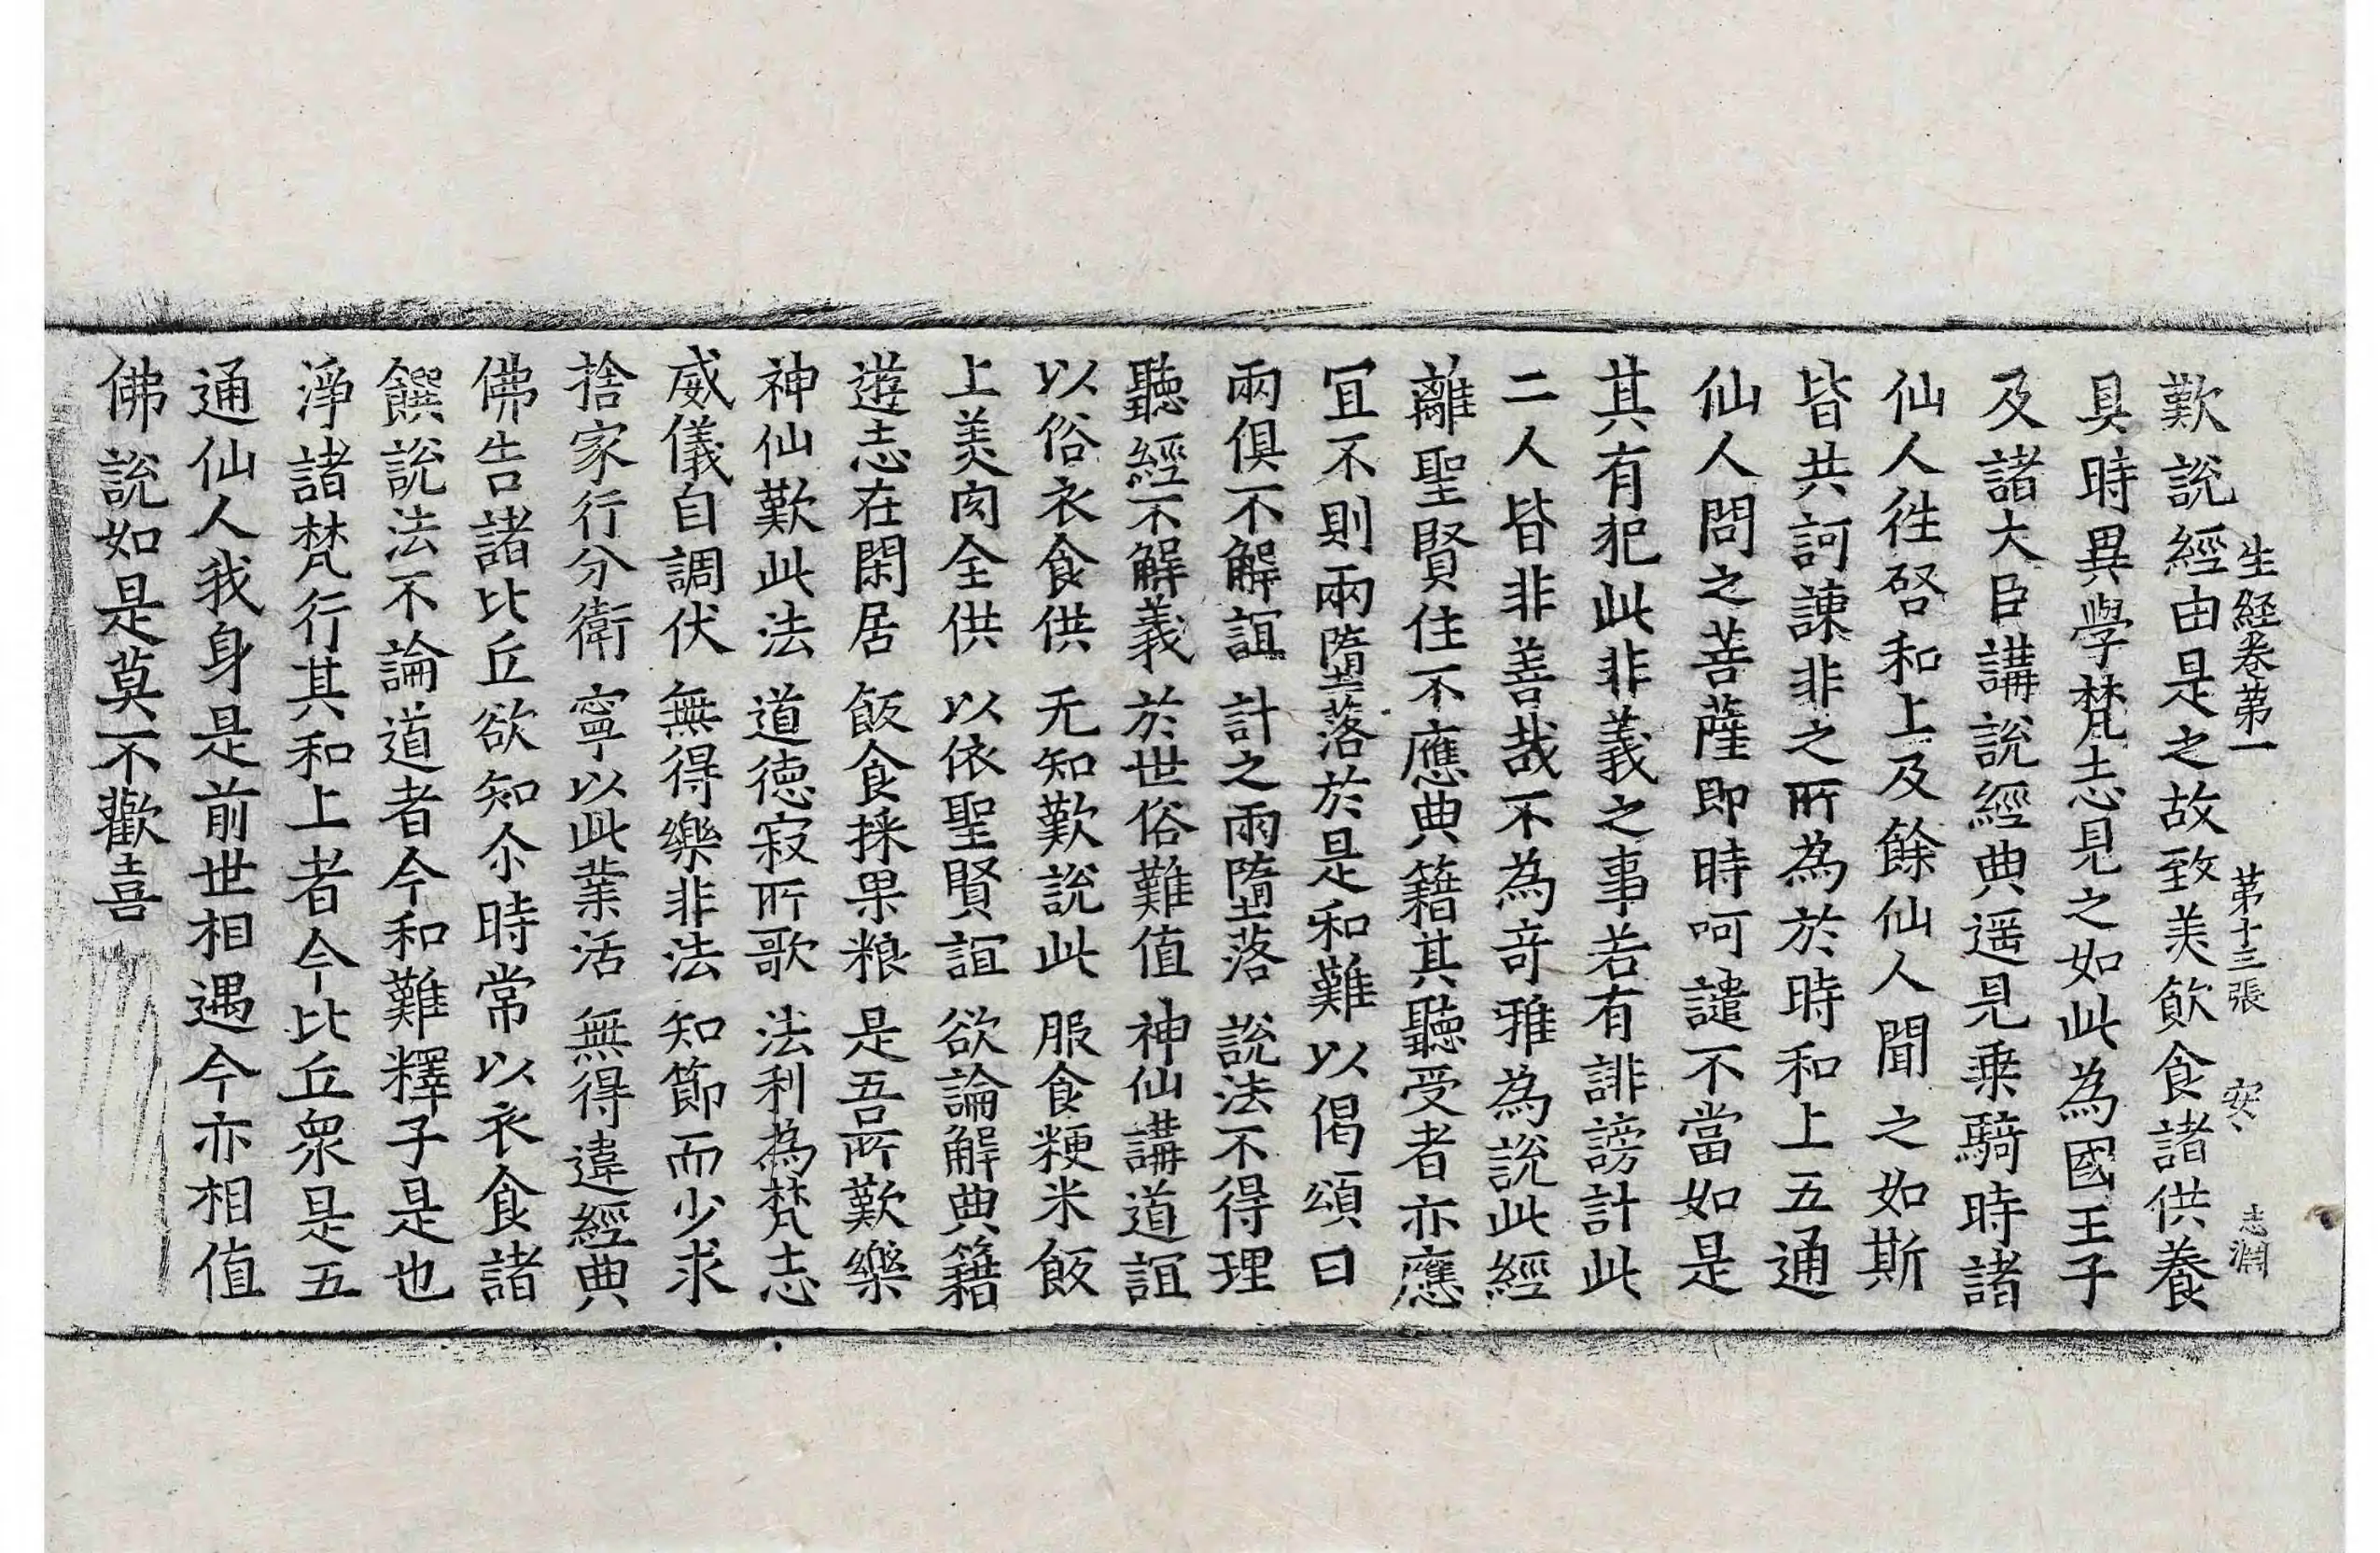 生經卷第一 第十三張 安、 志淵
歎說經由是之故致美飲食諸供養
具時異學梵志見之如此為國王子
及諸大臣講說經典遥見乗騎時諸
仙人徃啓和上及餘仙人聞之如斯
皆共訶諫非之所為於時和上五通
仙人問之菩薩即時呵譴不當如是
其有犯此非義之事若有誹謗計此
二人皆非善哉不為竒雅為說此經
離聖賢住不應典籍其聽受者亦應
冝不則兩墮落於是和難以偈頌曰
兩俱不解誼 計之兩墮落 說法不得理
聽經不解義 於世俗難值 神仙講道誼
以俗衣食供 无知歎說此 服食粳米飯
上美肉全供 以依聖賢誼 欲論解典籍
遊志在閑居 飯食採果粮 是吾所歎樂
神仙歎此法 道德寂所歌 法利為梵志
威儀自調伏 無得樂非法 知節而少求
捨家行分衛 寧以此業活 無得違經典
佛告諸比丘欲知尒時常以衣食諸
饌說法不論道者今和難釋子是也
淨諸梵行其和上者今比丘衆是五
通仙人我身是前世相遇今亦相值
佛說如是莫不歡喜